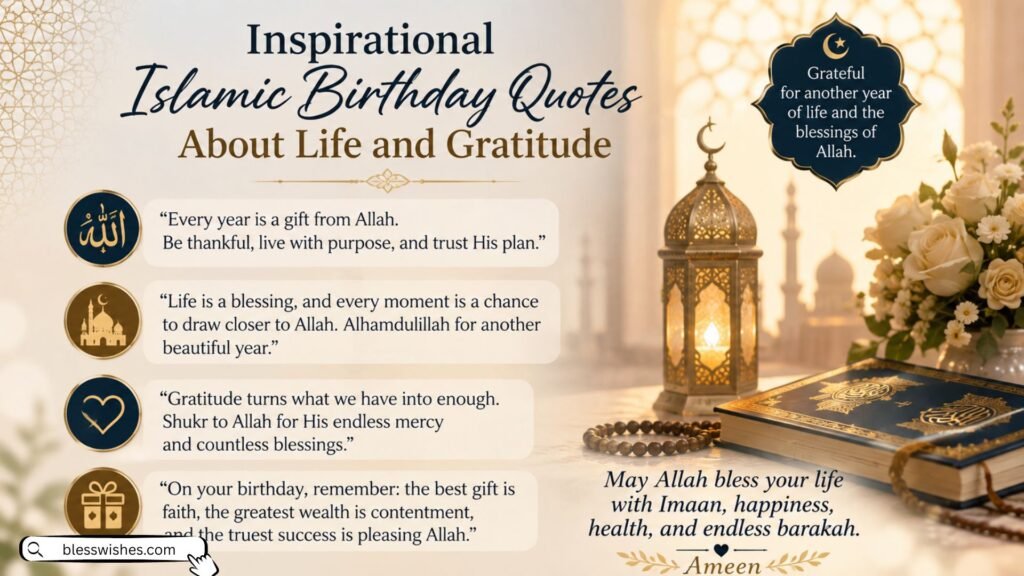 Inspirational
Islamic Birthday Quotes
About Life and Gratitude
الله
“Every year is a gift from Allah.
Be thankful, live with purpose, and trust His plan.”
“Life is a blessing, and every moment is a chance
to draw closer to Allah. Alhamdulillah for another
beautiful year.”
“Gratitude turns what we have into enough.
Shukr to Allah for His endless mercy
and countless blessings.”
“On your birthday, remember: the best gift is
faith, the greatest wealth is contentment,
and the truest success is pleasing Allah.”
blesswishes.com
Grateful
for another year
of life and the
blessings of
Allah.
May Allah bless your life
with Imaan, happiness,
health, and endless barakah.
Ameen